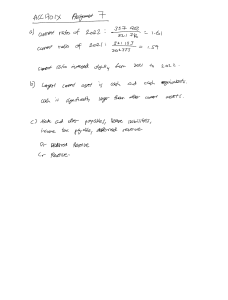 Assignment 7
a) current ratio of 2022: = 1.61
current ratio of 2021: = 1.59
current ratio increased slightly from 2021 to 2022.
b) Largest current asset is cash and cash equivalents.
cash is significantly larger than other current assets.
c) Trade and other payables, lease liabilities,
income tax payable, deferred revenue
Dr Deferred Revenue
Cr Revenue